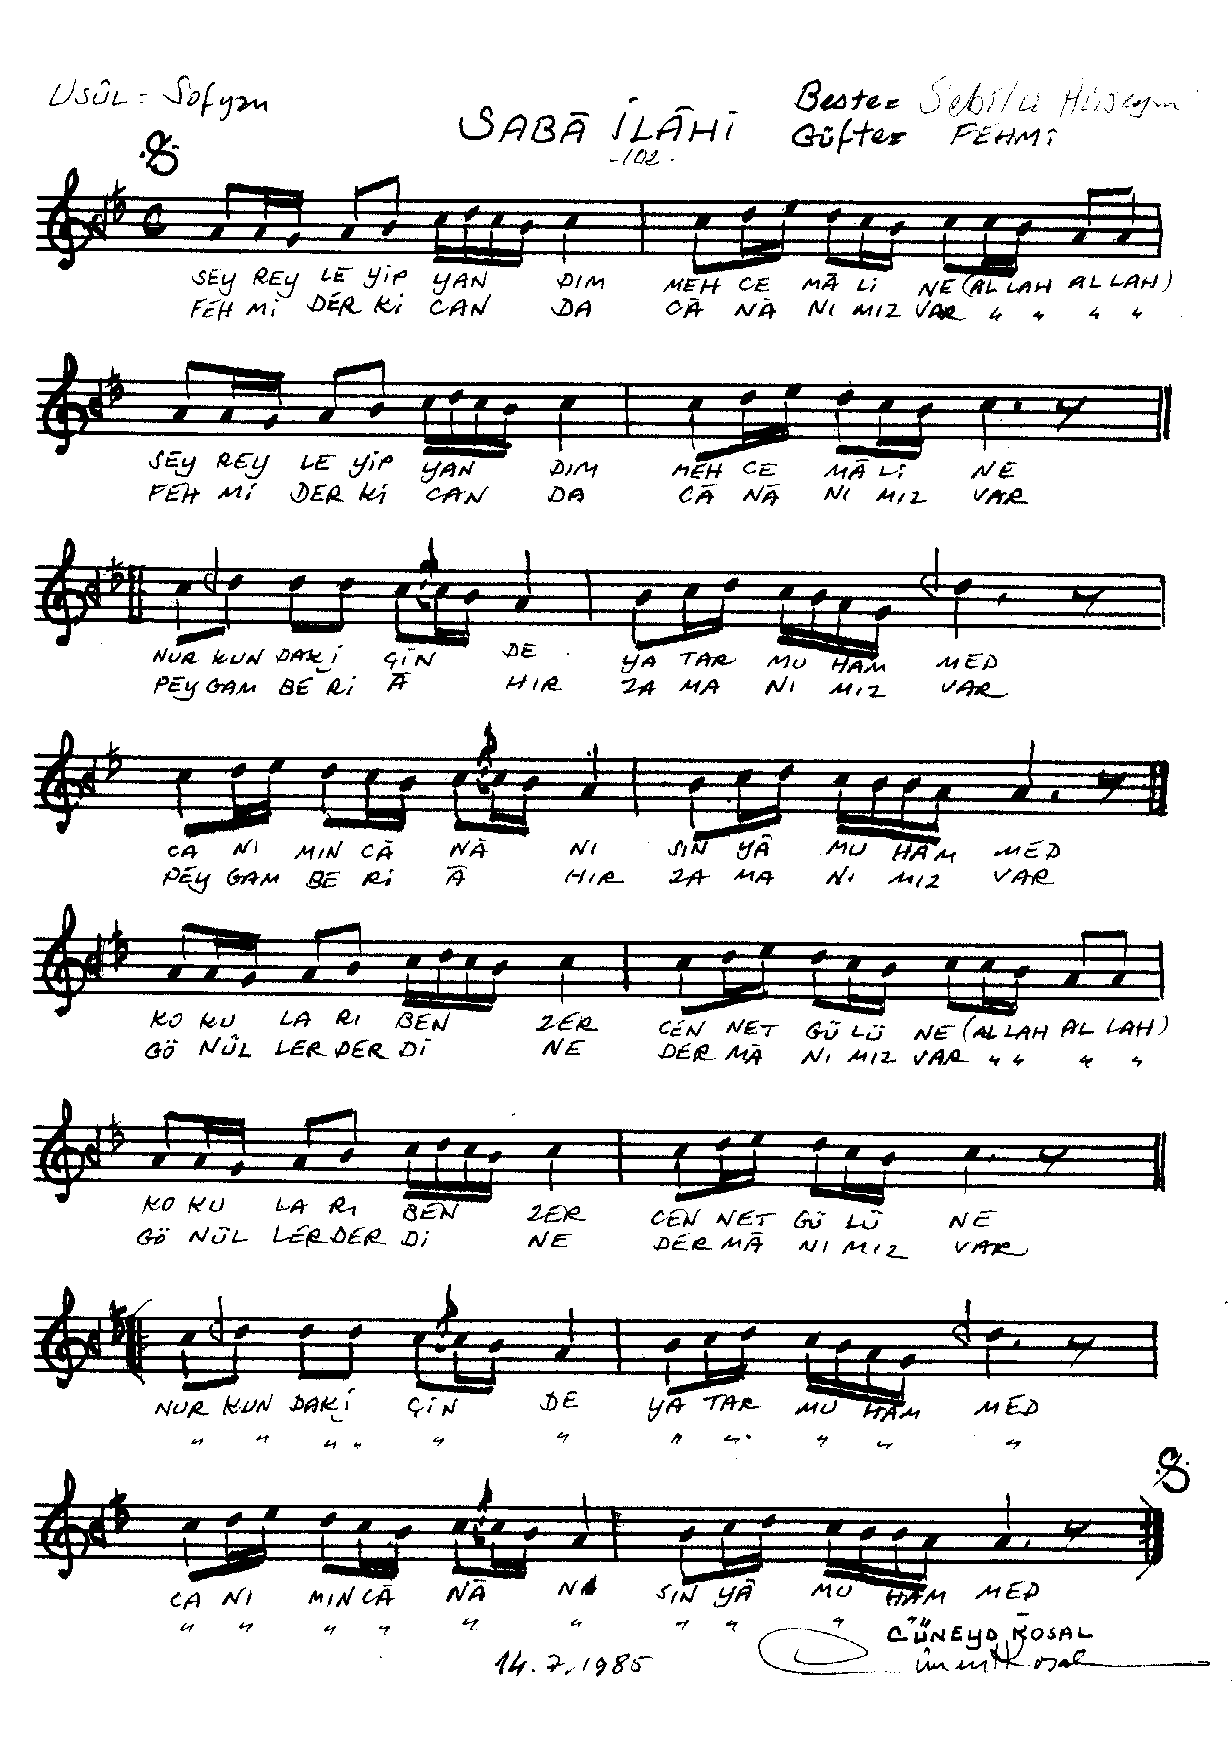 USÛL = Sofyan
Beste = Sebilci Hüseyin
SABÂ İLÂHİ
Güfte = FEHMİ
-102-
SEY REY LE YİP YAN DIM MEH CE MÂ Lİ NE (AL LAH AL LAH)
FEH Mİ DER Kİ CAN DA CÂ NÂ NI MIZ VAR " " " "
SEY REY LE YİP YAN DIM MEH CE MÂ Lİ NE
FEH Mİ DER Kİ CAN DA CÂ NÂ NI MIZ VAR
NUR KUN DAKİ ÇİN DE YA TAR MU HAM MED
PEY GAM BE Rİ Â HIR ZA MA NI MIZ VAR
CA NI MIN CÂ NÂ NI SIN YÂ MU HAM MED
PEY GAM BE Rİ Â HIR ZA MA NI MIZ VAR
KO KU LA RI BEN ZER CEN NET GÜ LÜ NE (AL LAH AL LAH)
GÖ NÜL LER DER Dİ NE DER MÂ NI MIZ VAR " " " "
KO KU LA RI BEN ZER CEN NET GÜ LÜ NE
GÖ NÜL LER DER Dİ NE DER MÂ NI MIZ VAR
NUR KUN DAKİ ÇİN DE YA TAR MU HAM MED
" " " " " " " " " " "
CA NI MIN CÂ NÂ NI SIN YÂ MU HAM MED
" " " " " " " " " " "
CÜNEYD KOSAL
14.7.1985